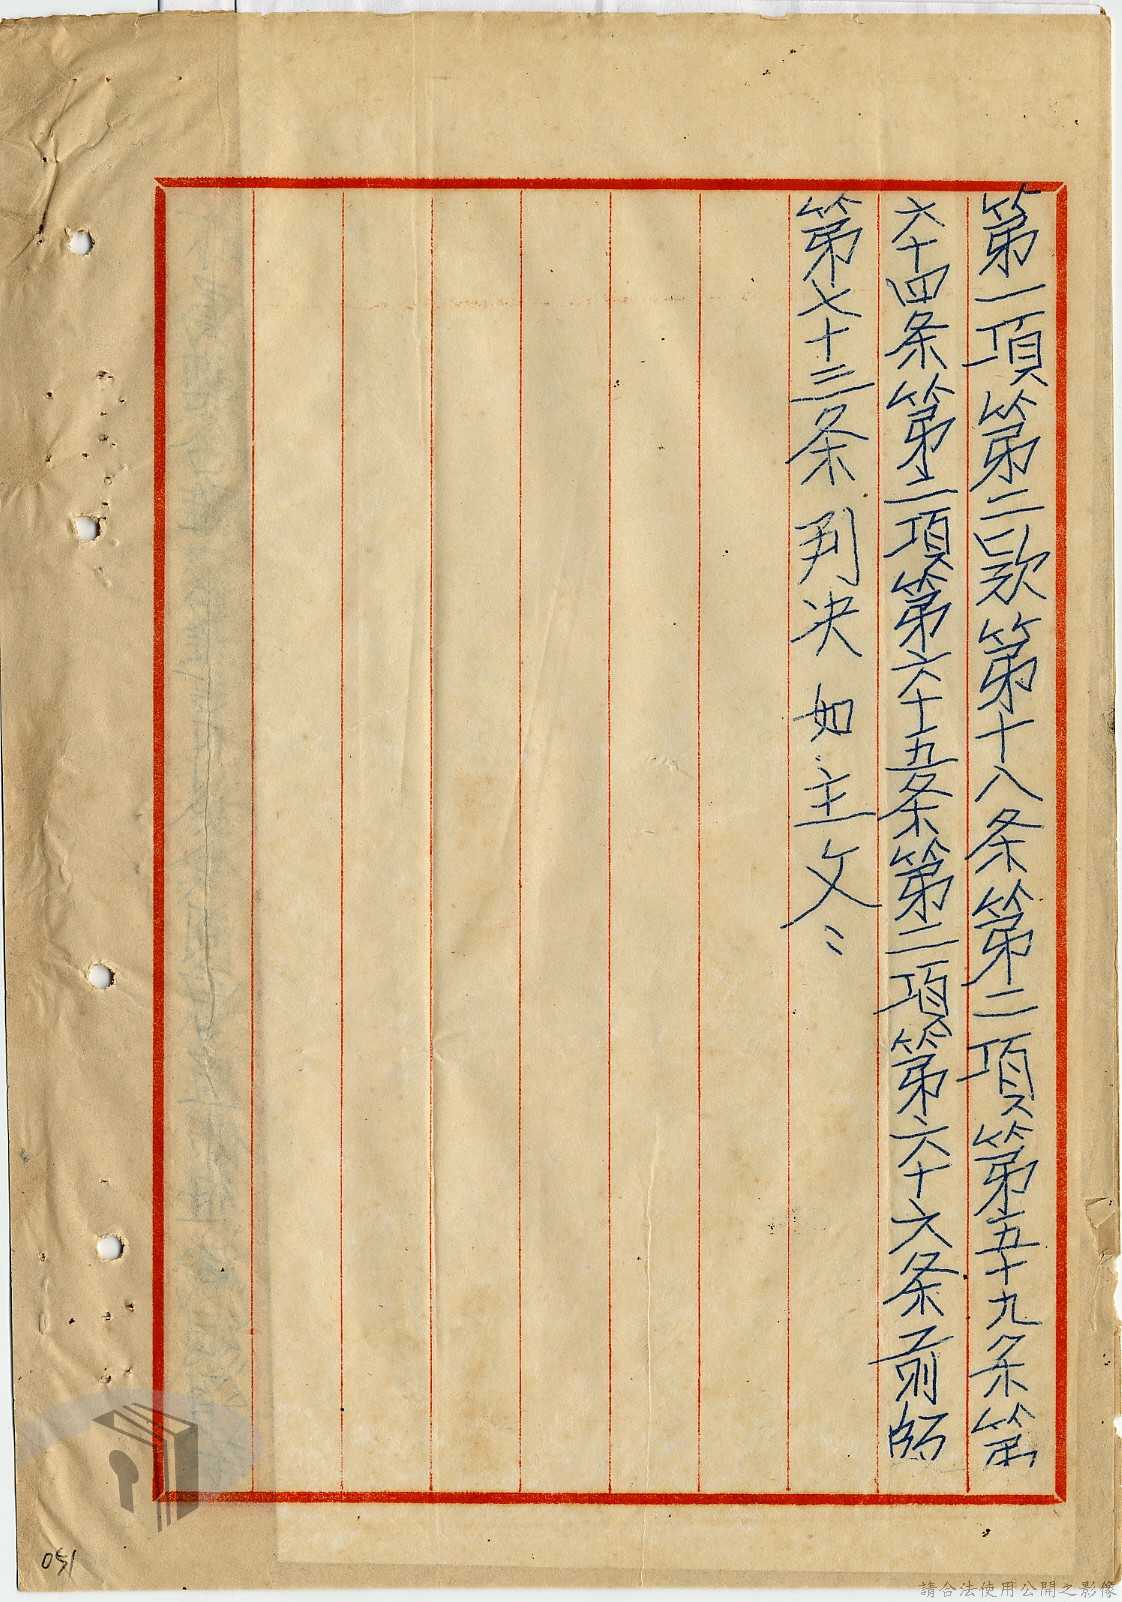 第一項第二款第十八条第二項第五十九条第
六十四条第二項第六十五条第二項第六十六条前師
第七十三条判决如主文
請合法使用公開之影像